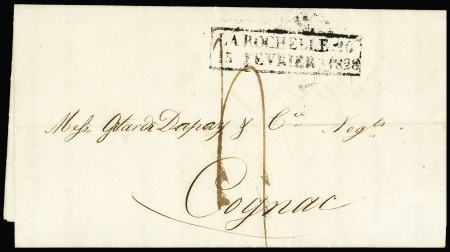 LA ROCHELLE 16
15 FEVRIER 1828
Mess. Otard Dupuy & Cie Negts.
Cognac